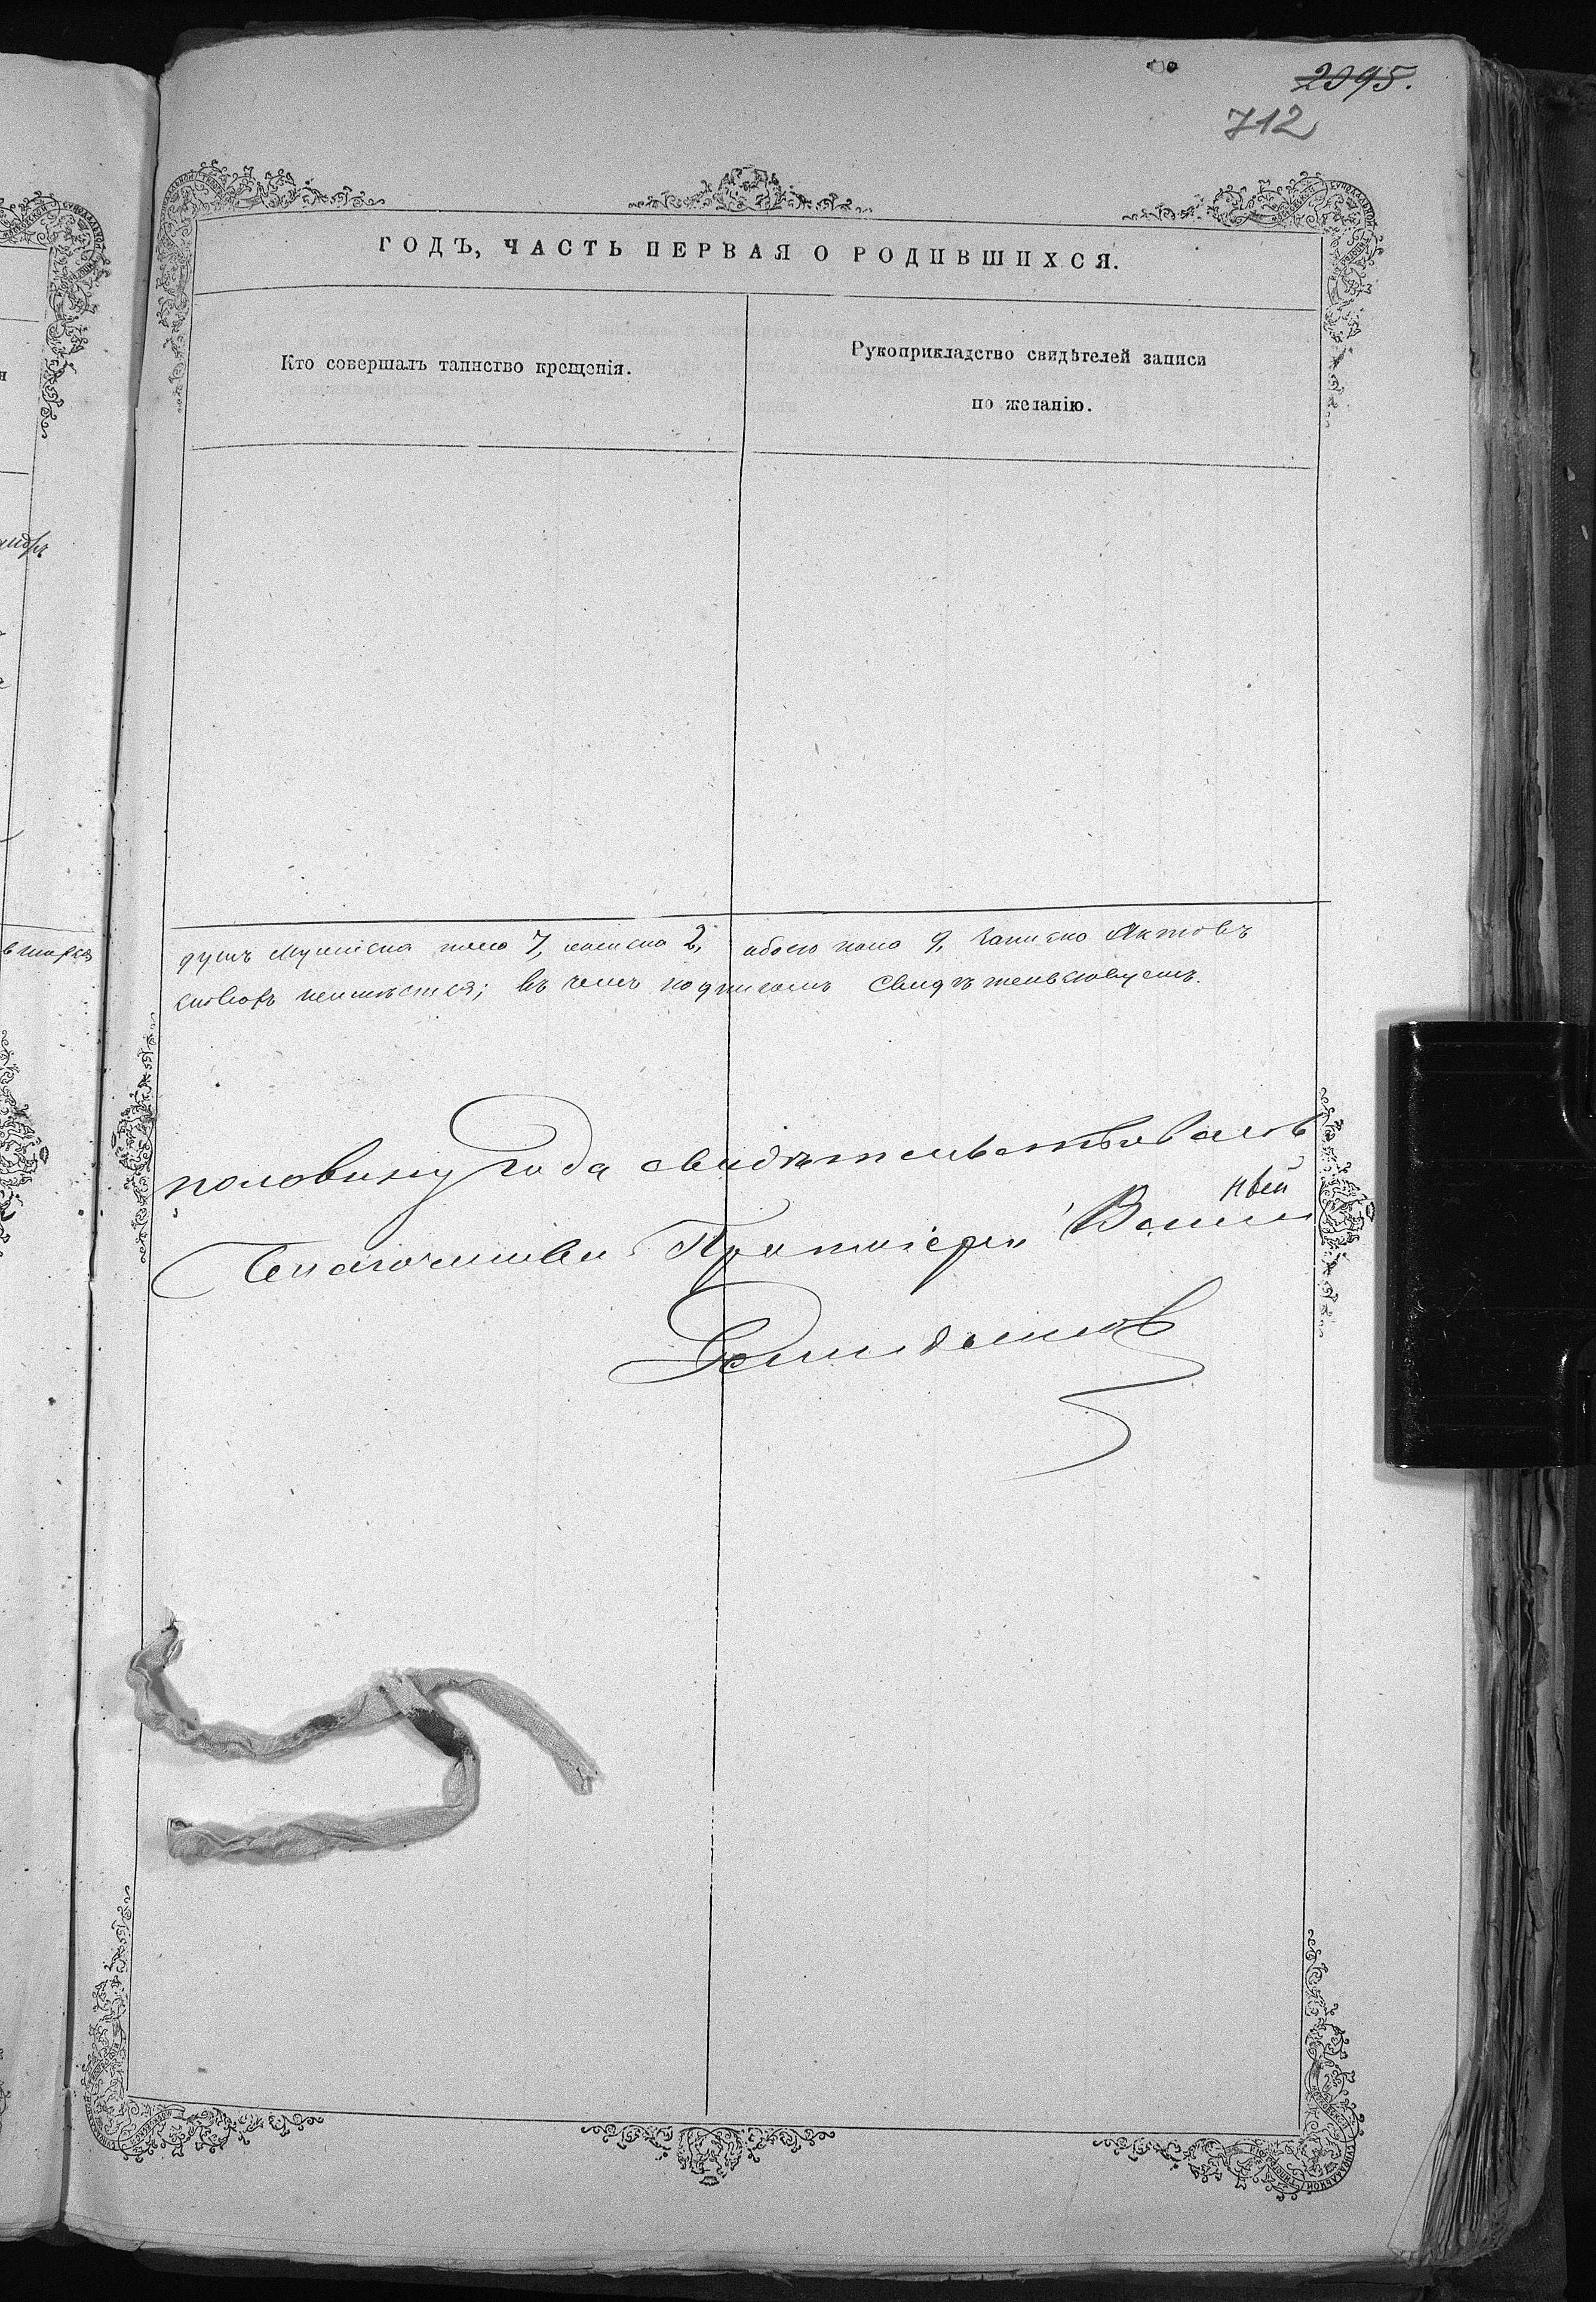 2095.
712
ГОДЪ, ЧАСТЬ ПЕРВАЯ О РОДИВШИХСЯ.
Кто совершалъ таинство крещенія.
Рукоприкладство свидѣтелей записи
по желанію.
душъ мужеска пола 7, женска 2, обоего пола 9, записно актовъ
неимѣется; въ чемъ подписомъ свидѣтельствуемъ.
половину года свидѣтельствовалъ
Благочинный Протоіерей